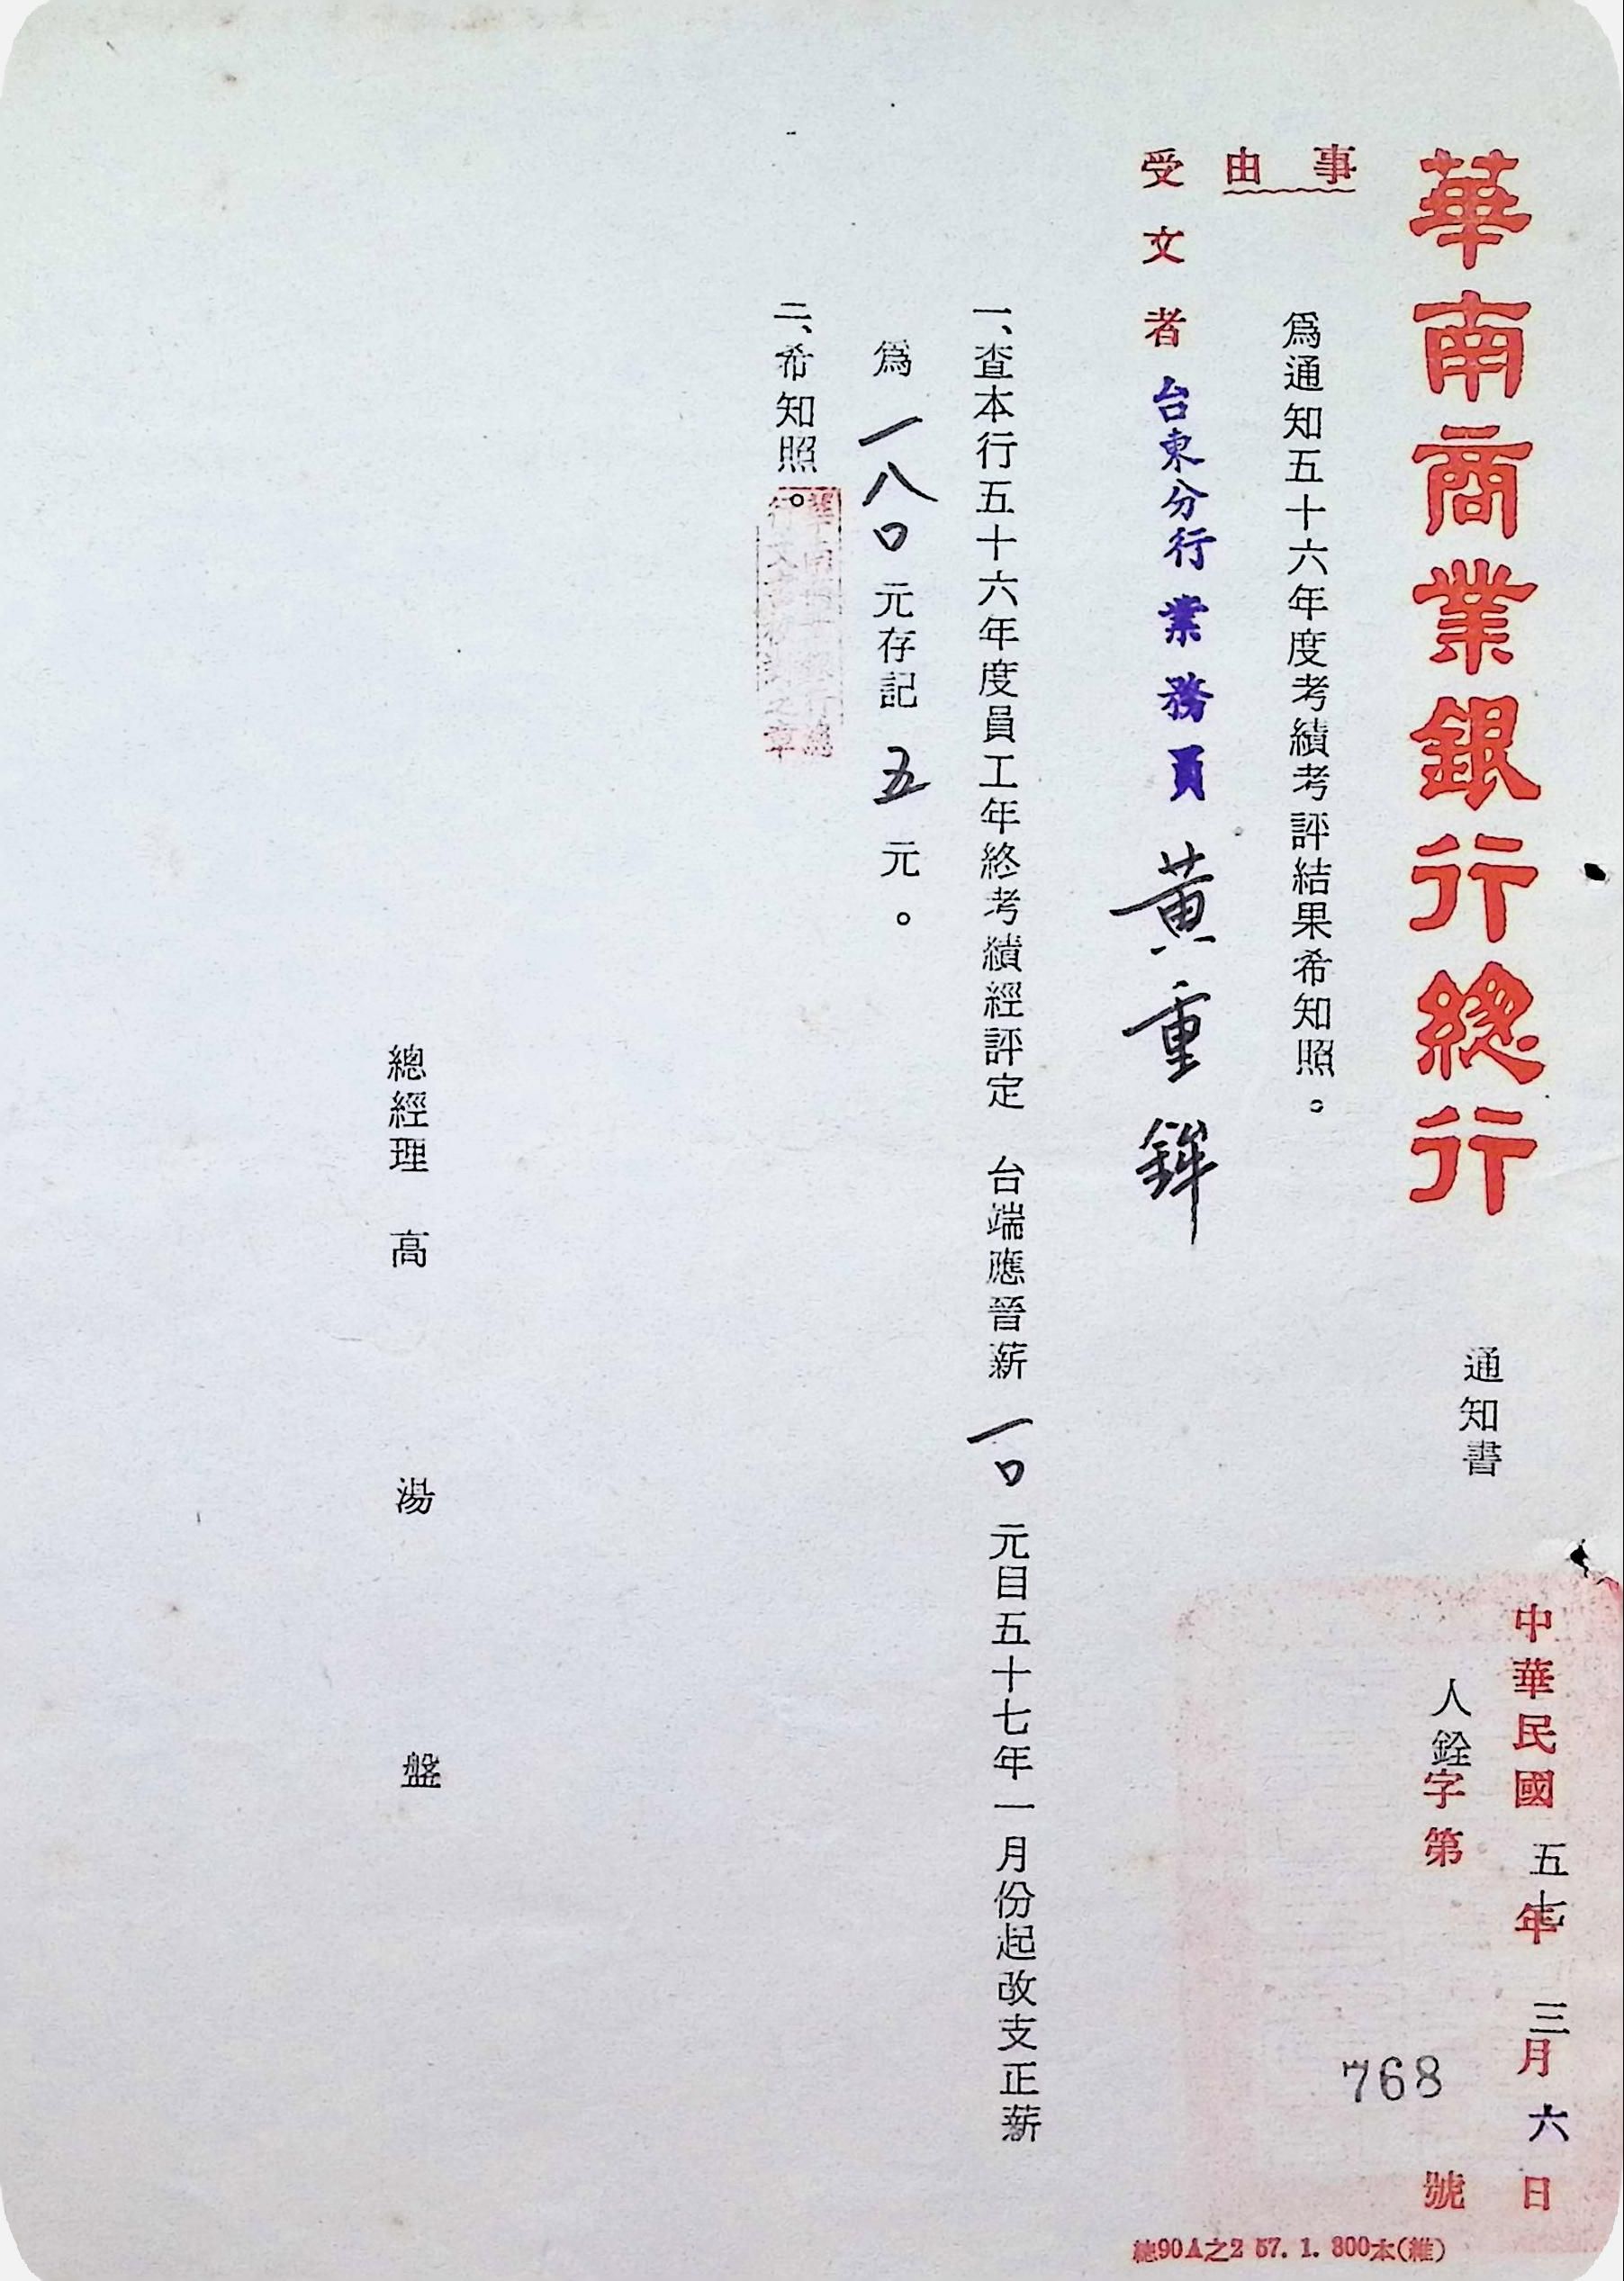 華南商業銀行總行
通知書
中華民國五七年三月六日
人銓字第768號
事由
為通知五十六年度考績考評結果希知照。
受文者台東分行業務員黃重鉾
一、查本行五十六年度員工年終考績經評定 台端應晉薪一0元自五十七年一月份起改支正薪
為一八0元存記五元。
二、希知照。
總經理 高湯盤
總90A之2 57. 1. 300本(維)